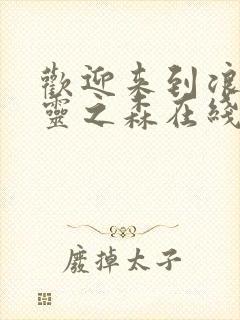 歡迎来到浪
靈之森在綫
廢掉太子